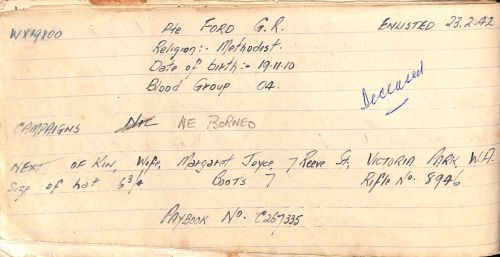 WX19100 Pte FORD G.R. ENLISTED 23.2.42
Religion:- Methodist.
Date of birth:- 19.11.10
Blood Group O4.
Deceased
CAMPAIGNS NE BORNEO
NEXT OF KIN, Wife, Margaret Joyce, 7 Reeve St, VICTORIA PARK, W.A.
Size of hat 6 3/4 Boots 7 Rifle No. 8946
PAYBOOK No. C267335